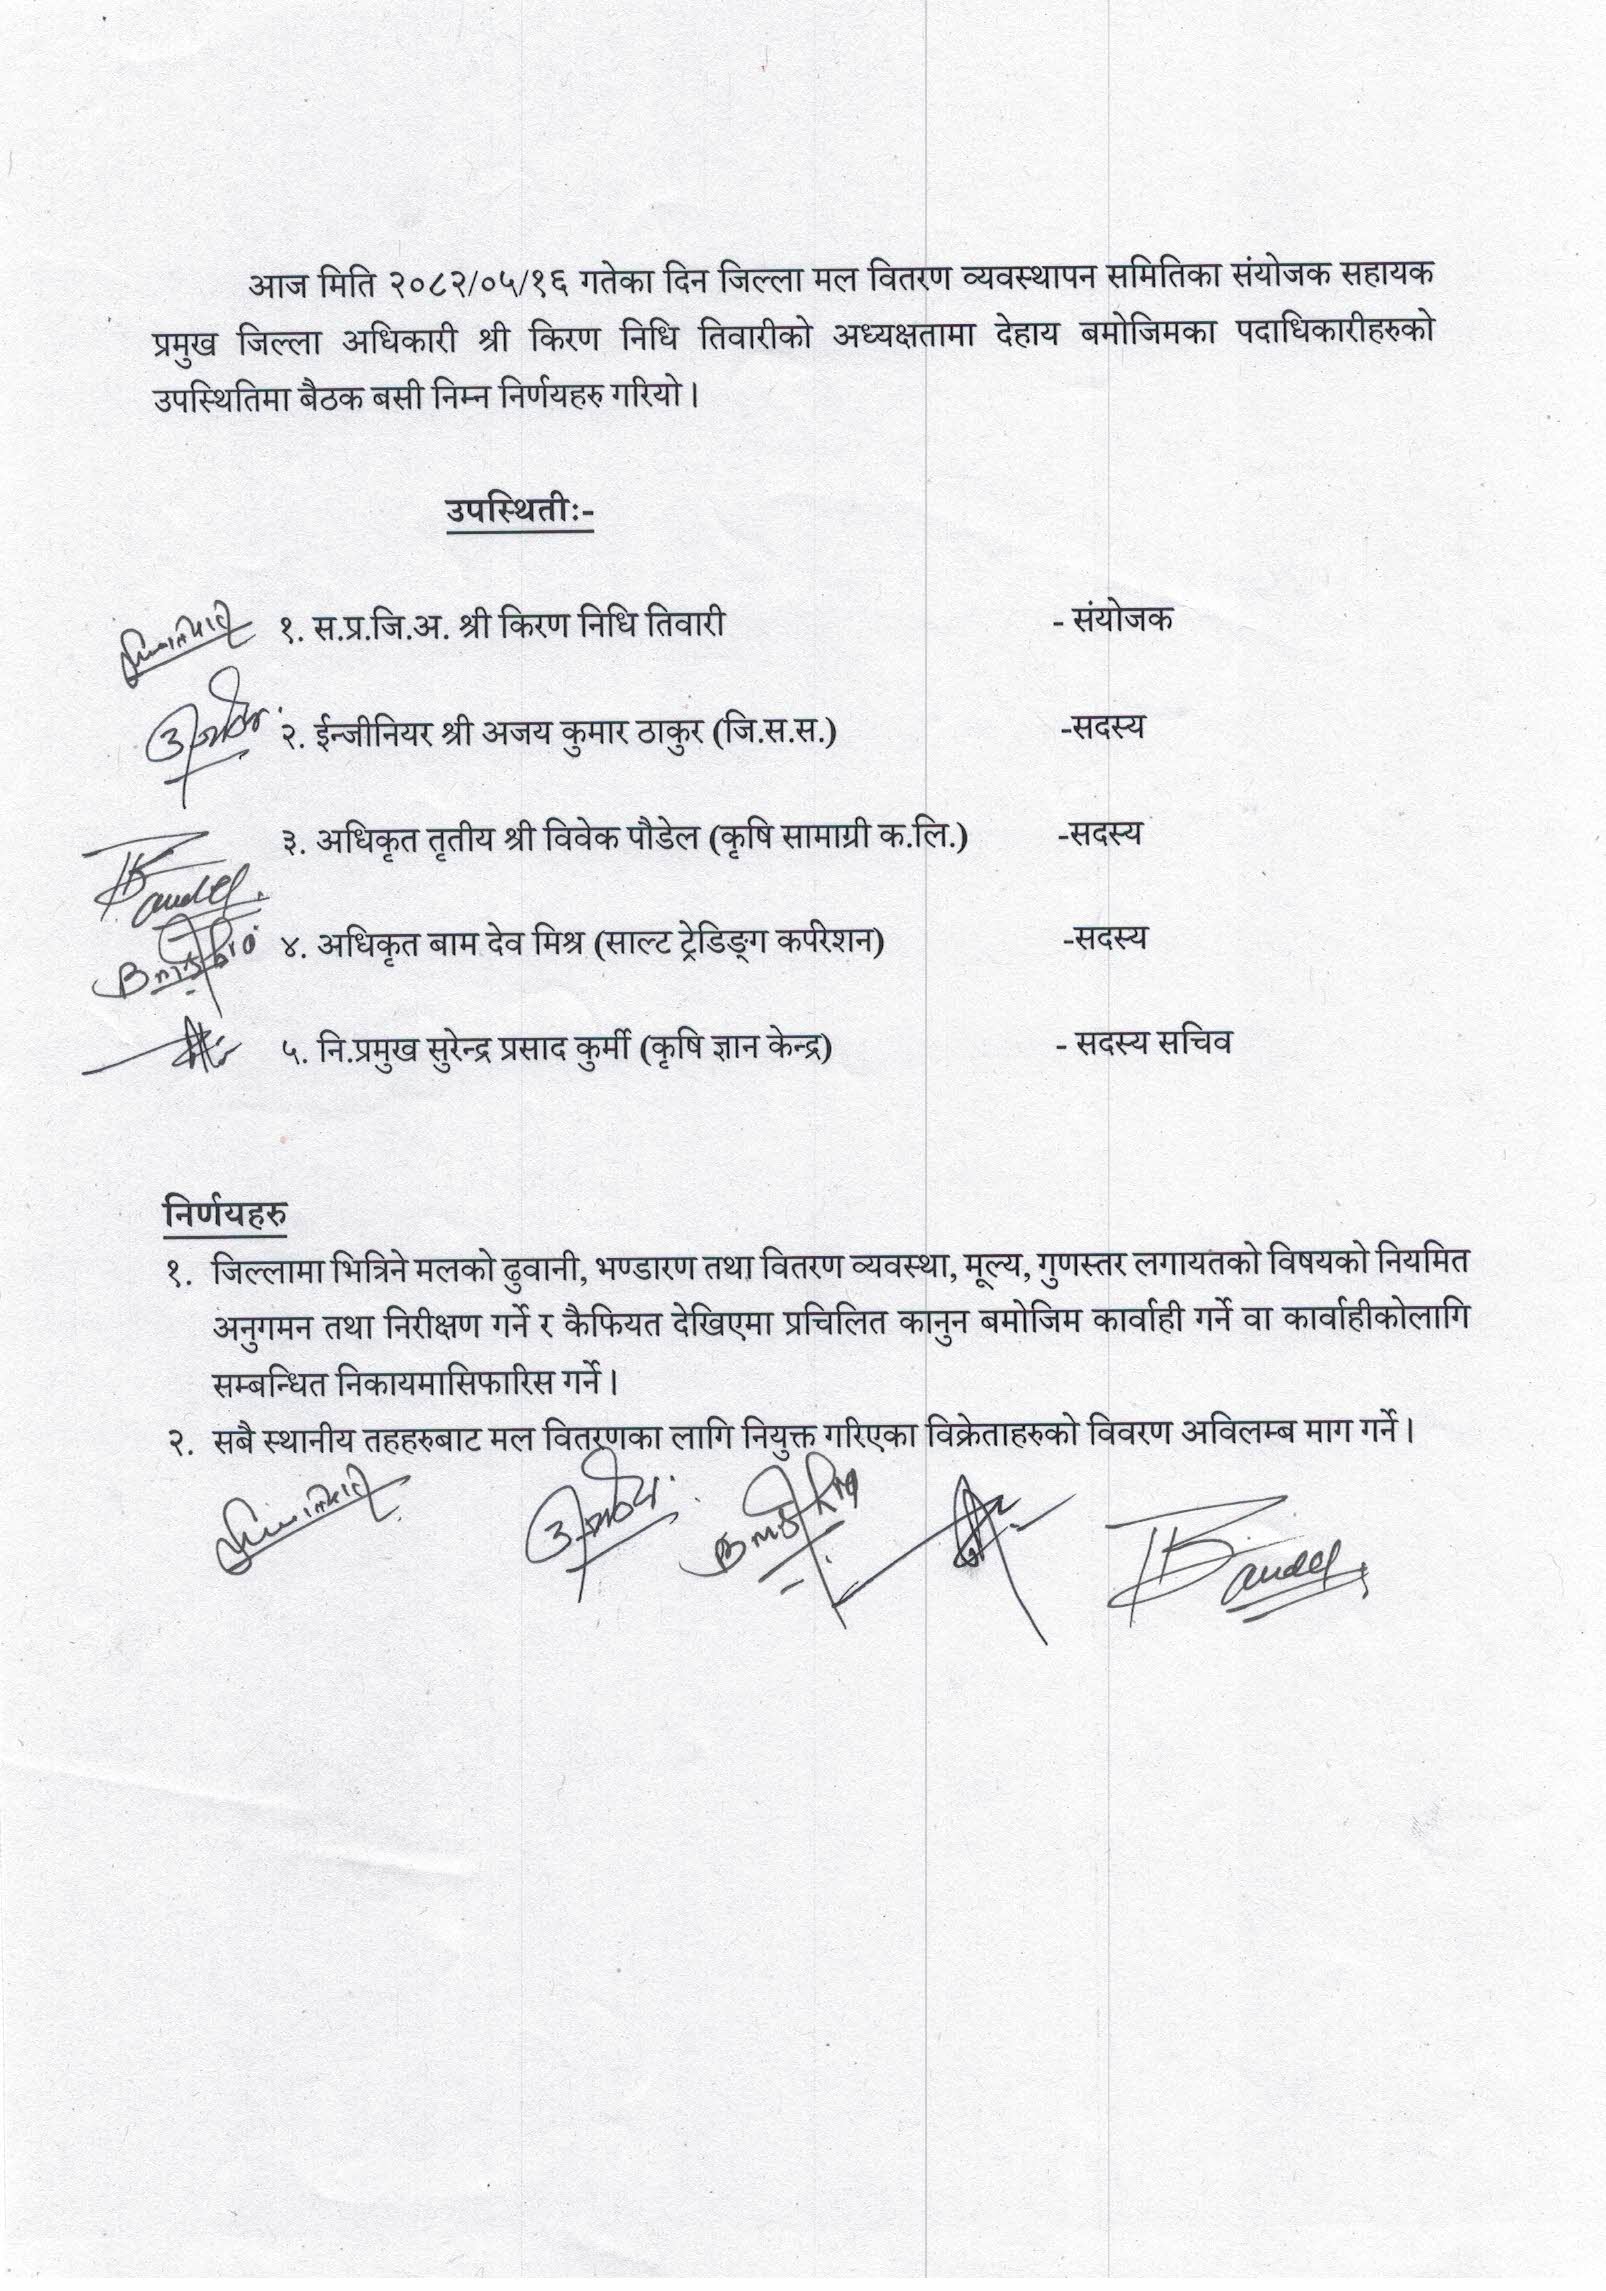 आज मिति २०८२/०५/१६ गतेका दिन जिल्ला मल वितरण व्यवस्थापन समितिका संयोजक सहायक
प्रमुख जिल्ला अधिकारी श्री किरण निधि तिवारीको अध्यक्षतामा देहाय बमोजिमका पदाधिकारीहरुको
उपस्थितिमा बैठक बसी निम्न निर्णयहरु गरियो ।
उपस्थितीः-
१. स.प्र.जि.अ. श्री किरण निधि तिवारी - संयोजक
२. ईन्जीनियर श्री अजय कुमार ठाकुर (जि.स.स.) -सदस्य
३. अधिकृत तृतीय श्री विवेक पौडेल (कृषि सामाग्री क.लि.) -सदस्य
४. अधिकृत बाम देव मिश्र (साल्ट ट्रेडिङ्ग कर्पोरेशन) -सदस्य
५. नि.प्रमुख सुरेन्द्र प्रसाद कुर्मी (कृषि ज्ञान केन्द्र) - सदस्य सचिव
निर्णयहरु
१. जिल्लामा भित्रिने मलको ढुवानी, भण्डारण तथा वितरण व्यवस्था, मूल्य, गुणस्तर लगायतको विषयको नियमित
अनुगमन तथा निरीक्षण गर्ने र कैफियत देखिएमा प्रचिलित कानुन बमोजिम कार्वाही गर्ने वा कार्वाहीकोलागि
सम्बन्धित निकायमासिफारिस गर्ने ।
२. सबै स्थानीय तहहरुबाट मल वितरणका लागि नियुक्त गरिएका विक्रेताहरुको विवरण अविलम्ब माग गर्ने ।